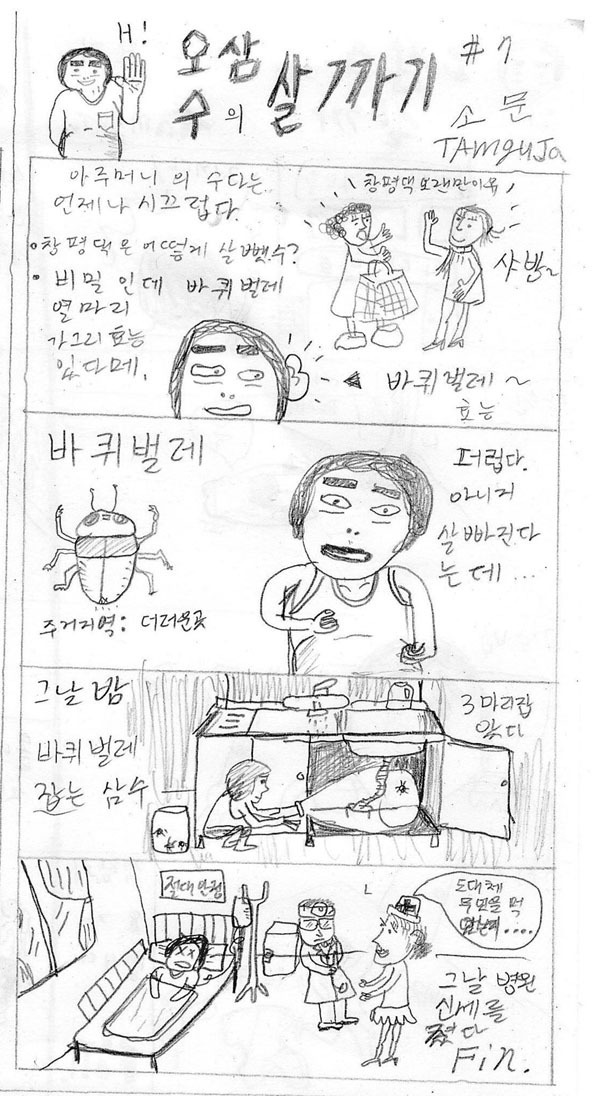 H!
오삼
수의 살 까기
#7
소문
TAMguJa
아주머니 의 수다는
언제나 시끄럽다.
창평댁 오랜만이유
• 창평댁은 어떻게 살뺐수?
샤방~
• 비밀 인데 바퀴벌레
열마리
가그리 효능
있다메.
바퀴벌레~
효능
바퀴벌레
주거지역: 더러운곳
더럽다.
아니지
살빠진다
는데...
그날밤
바퀴벌레
잡는 삼수
3마리잡
았다
절대안정
도대체
무엇을 먹
....
그날 병원
신세를
졌다
Fin.